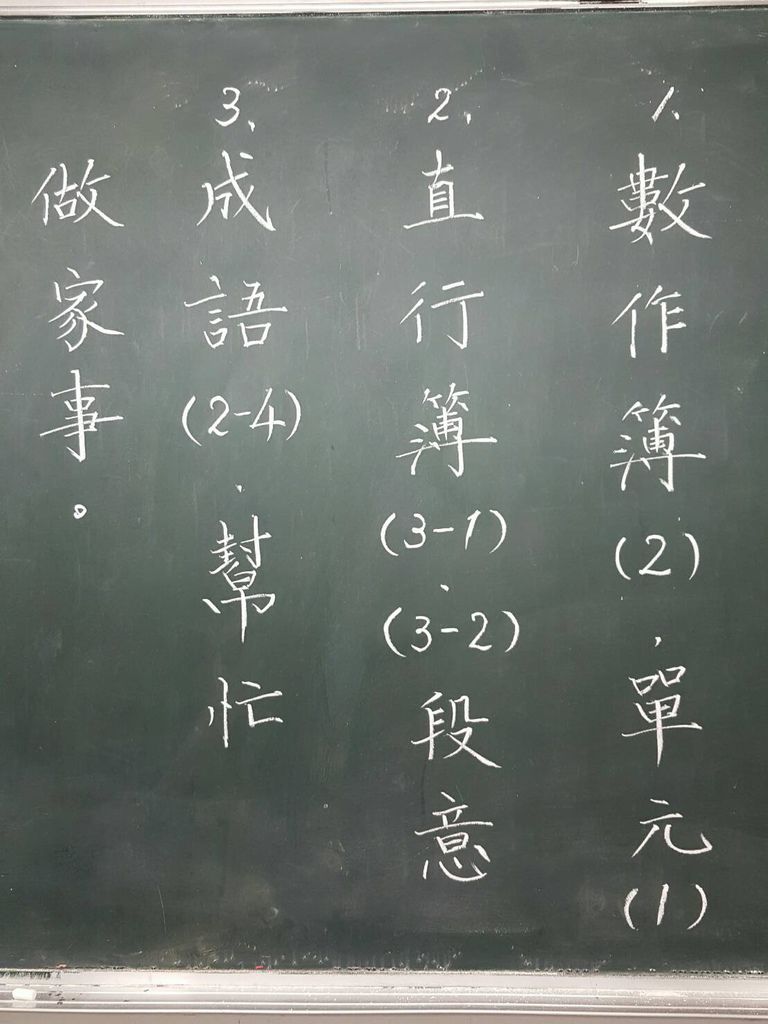 1、數作簿(2)，單元(1)
2、直行簿(3-1)、(3-2)段意
3、成語(2-4)、幫忙
做家事。